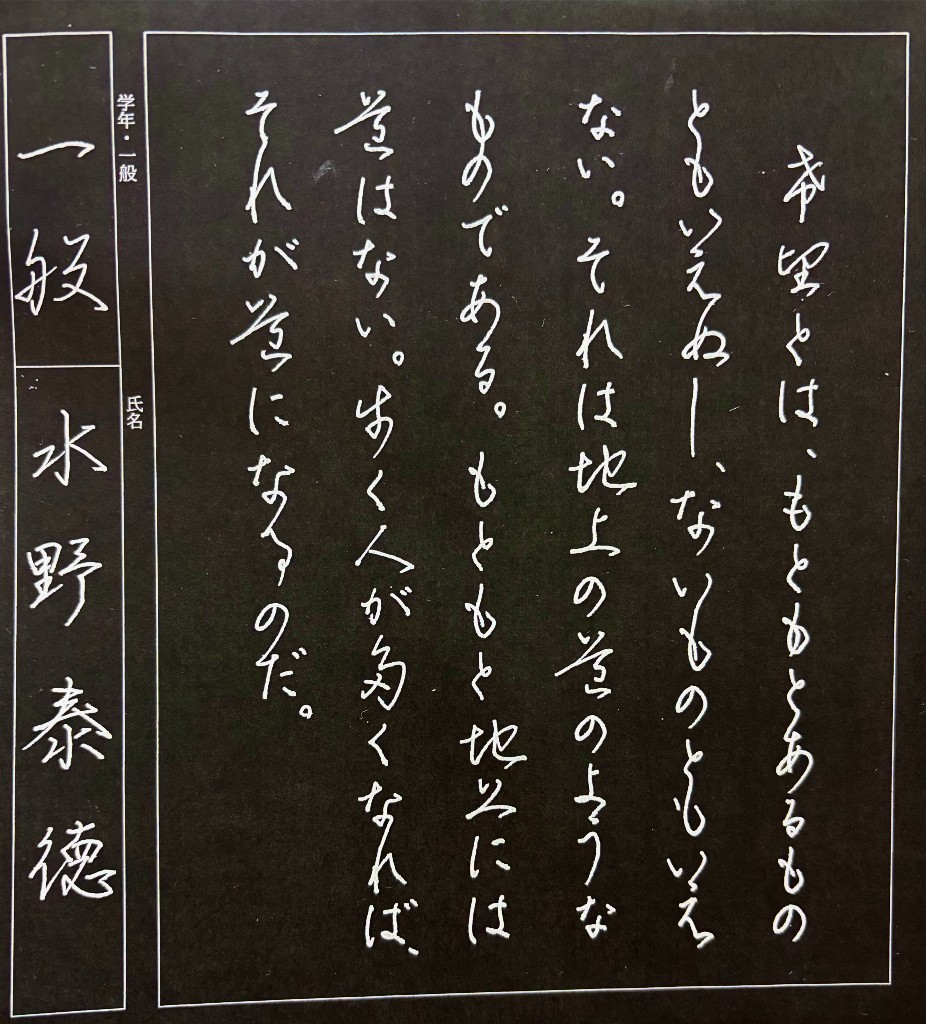 希望とは、もともとあるもの
ともいえぬし、ないものともいえ
ない。それは地上の道のような
ものである。もともと地上には
道はない。歩く人が多くなれば、
それが道になるのだ。
学年・一般
一般
氏名
水野泰徳